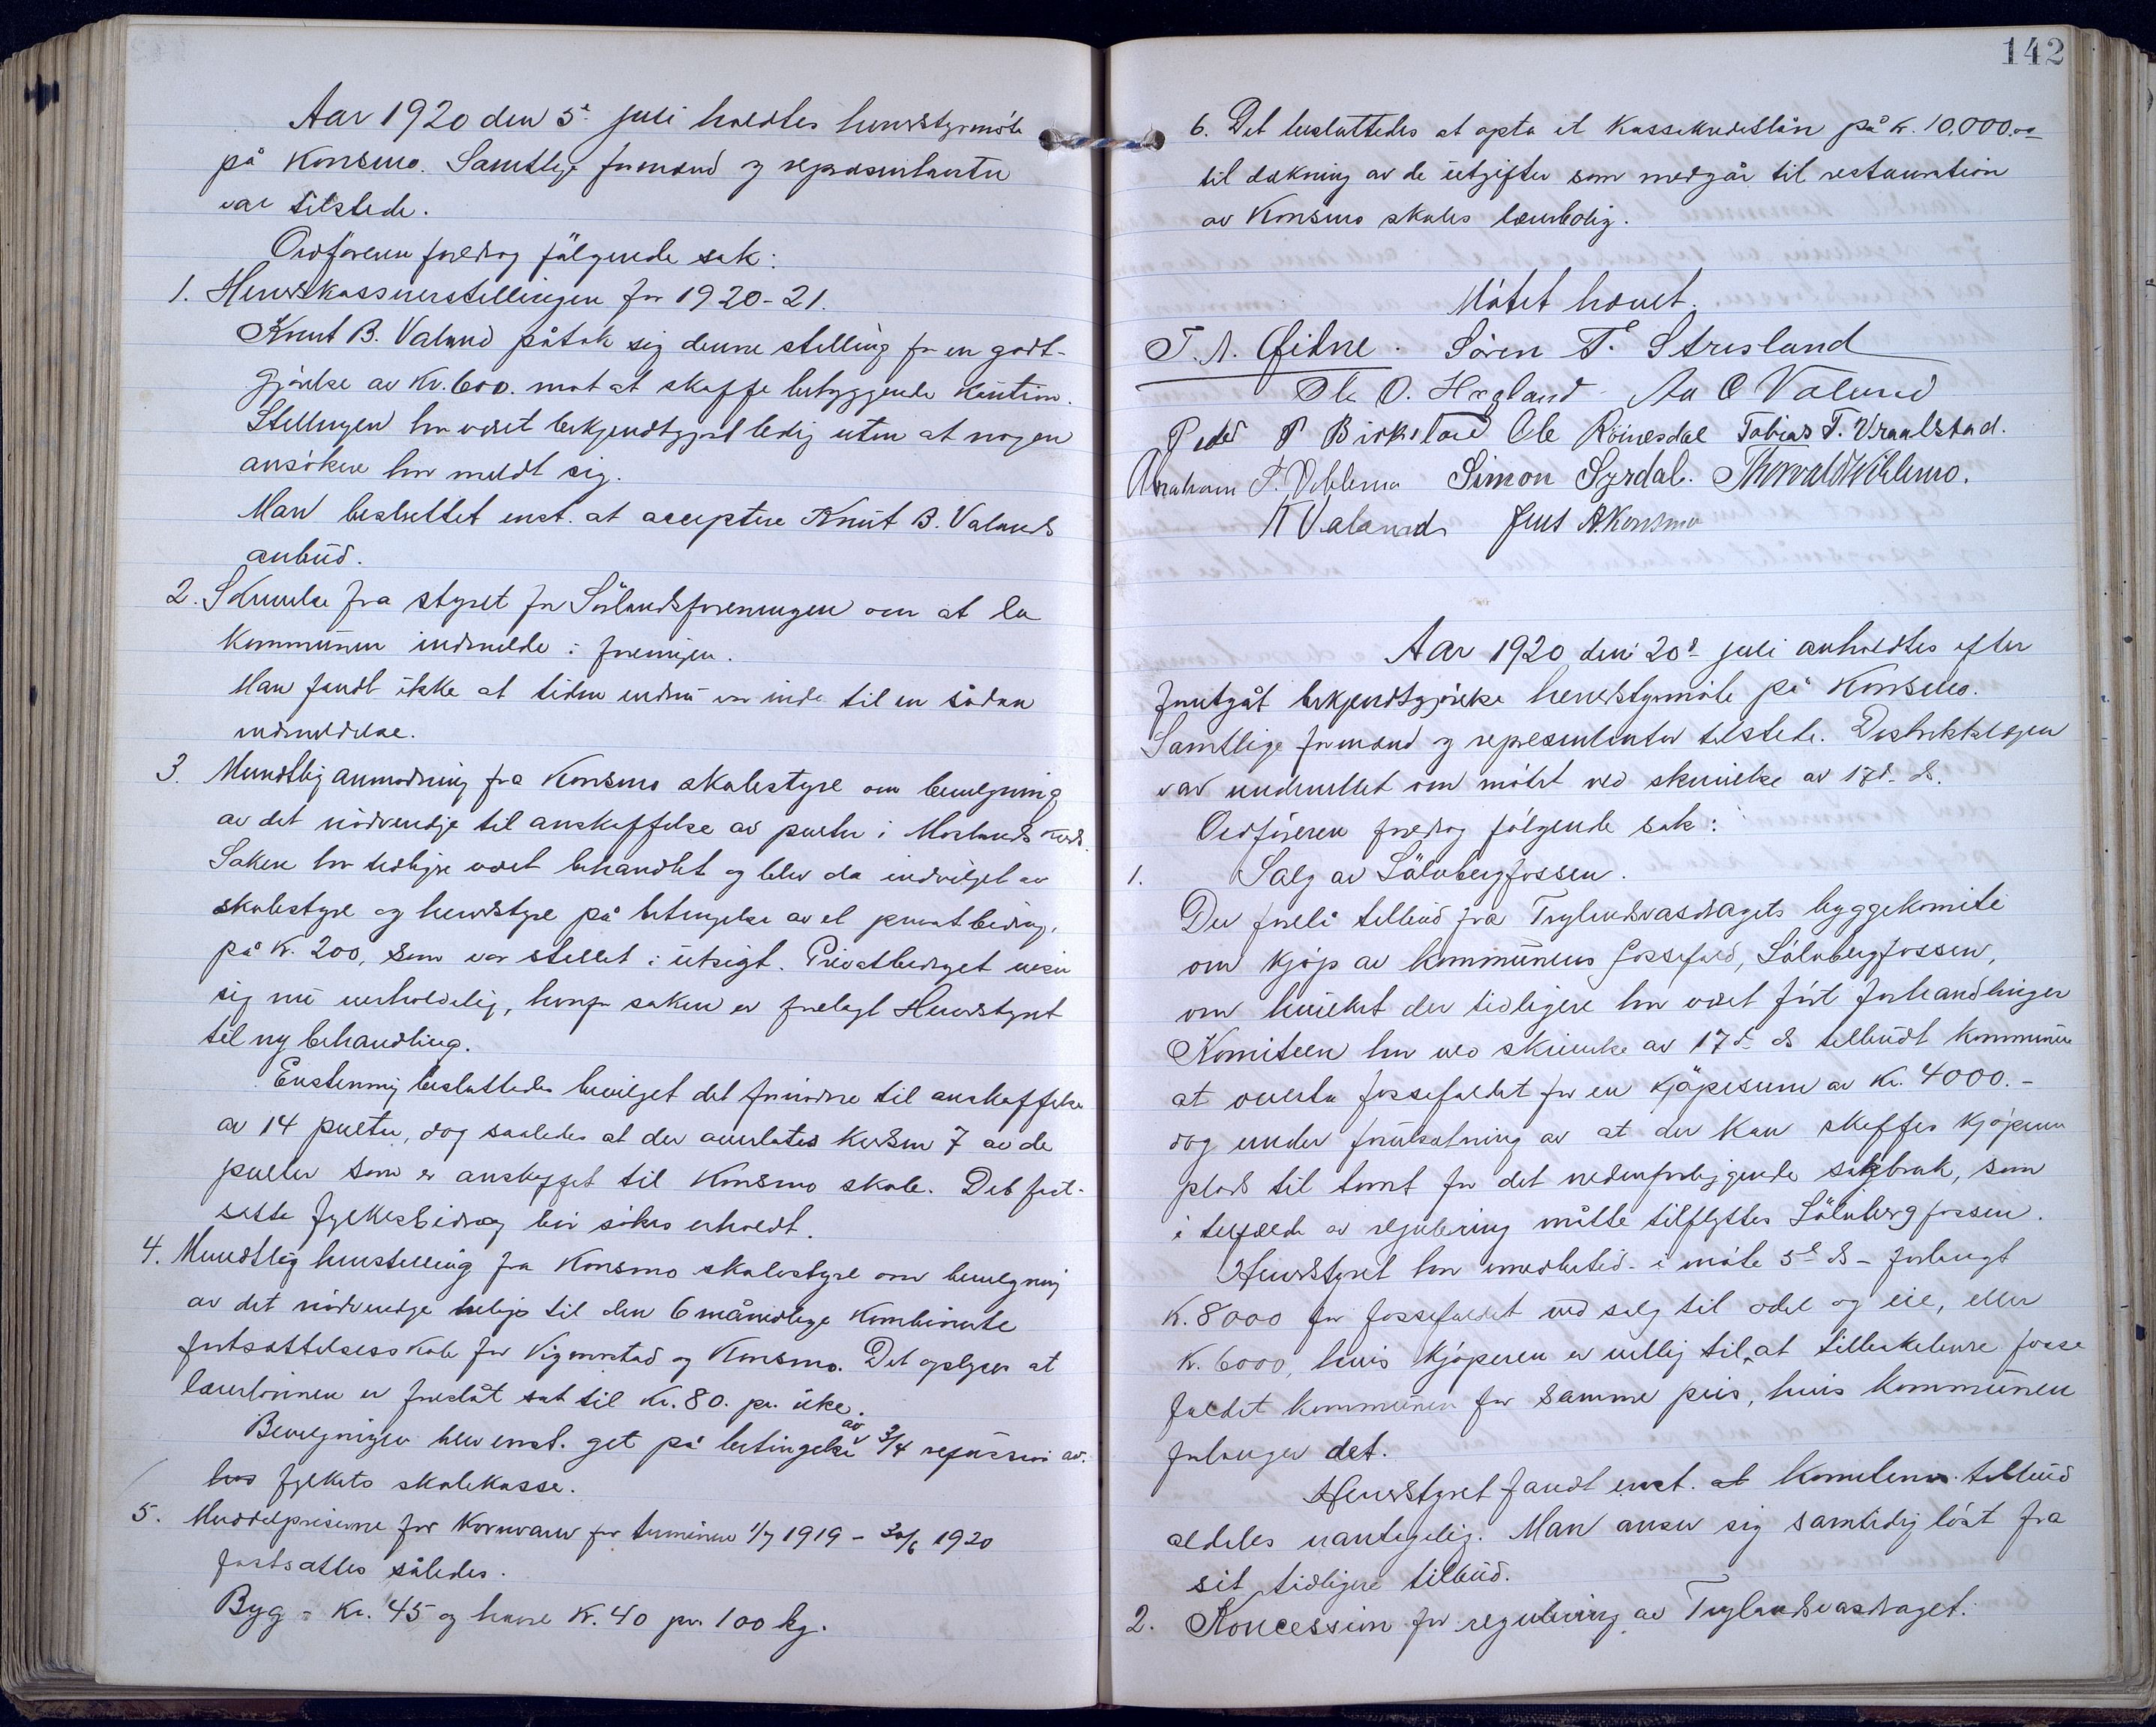 Aar 1920 den 5te juli holdtes herredstyrmöte
på Konsmo. Samtlige formænd og repræsentanter
var tilstede.
Ordföreren foredrog fölgende sak:
1. Herredskassererstillingen for 1920-21.
Knut B. Valand påtok sig denne stilling for en godt-
gjörelse av Kr. 600. mot at skaffe betryggende kaution.
Stillingen har været bekjendtgjort ledig uten at nogen
ansökere har meldt sig.
Man besluttet enst. at acceptere Knut B. Valands
anbud.
2. Skrivelse fra styret for Sörlandsforeningen om at la
kommunen indmelde i foreningen.
Man fandt ikke at tiden endnu var inde til en sådan
indmeldelse.
3. Mundtlig anmodning fra Konsmo skolestyre om bevilgning
av det nödvendige til anskaffelse av pulter i Moslands kreds.
Saken har tidligere været behandlet og blev da indvilget av
skolestyre og herredstyre på betingelse av et privat bidrag,
på kr. 200, som var stillet i utsigt. Privatbidraget viser
sig nu uerholdelig, hvorfor saken er forelagt Herredstyret
til ny behandling.
Enstemmig besluttedes bevilget det fornödne til anskaffelse
av 14 pulter, dog saaledes at der overlates kredsen 7 av de
pulter som er anskaffet til Konsmo skole. Det fast-
satte fylkesbidrag bör sökes erholdt.
4. Mundtlig henstilling fra Konsmo skolestyre om bevilgning
av det nödvendige belöp til den 6 månedlige kombinerte
fortsættelsesskole for Vigmostad og Konsmo. Det oplyses at
lærerlönnen er foreslåt sat til kr. 80. pr. uke.
Bevilgningen blev enst. git på betingelse av 3/4 refusion av
fylkets skolekasse.
5. Middelprisene for kornvarer for terminen 1/7 1919 - 30/6 1920
fastsattes således.
Byg - Kr. 45 og havre Kr. 40 pr. 100 kg.
142
6. Det besluttedes at opta et kassekreditlån på kr. 10,000.00
til dækning av de utgifter som medgår til restauration
av Konsmo skoles lærerbolig.
Mötet hævet.
T. A. Öidne. Sören T. Strisland
Ole O. Hægland Aa O Valand
Peder P Birkeland Ole Röinesdal Tobias T. Vraalstad.
Abraham T. Viblemo Simon Syrdal. Thorvald Viblemo.
K Valand Jens A Konsmo
Aar 1920 den 20de juli avholdtes efter
forutgåt bekjendtgjörelse herredstyrmöte på Konsmo.
Samtlige formænd og repræsentanter tilstede. Distriktslægen
var underrettet om mötet ved skrivelse av 17de ds.
Ordföreren foredrog fölgende sak:
1. Salg av Sölvbergfossen.
Der forelå tilbud fra Trylandsvasdragets byggekomite
om kjöp av kommunens fossefald, Sölvbergfossen,
om hvilket der tidligere har været fört forhandlinger
Komiteen har ved skrivelse av 17de ds tilbudt kommunen
at overta fossefaldet for en kjöpesum av Kr. 4000.-
dog under forutsætning av at der kan skaffes kjöperen
plads til tomt for det nedenforliggende sagbruk, som
i tilfælde av regulering måtte tilflyttes Sölvbergfossen.
Herredstyret har imedlertid - i möte 5te ds - forlangt
Kr. 8000 for fossefaldet ved salg til odel og eie, eller
Kr. 6000, hvis kjöperen er villig til at tilbakelevere fosse
faldet kommunen for samme pris, hvis kommunen
forlanger det.
Herredstyret fandt enst. komiteens tilbud
aldeles uantagelig. Man anser sig samtidig löst fra
sit tidligere tilbud.
2. Koncession for regulering av Trylandsvasdraget.